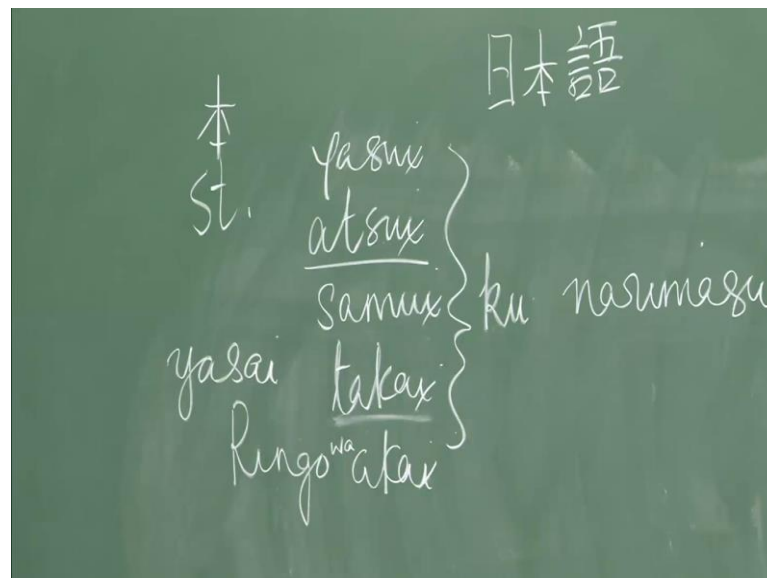 日本語
本 yasux
St. atsux
samux } ku narumasu
yasai takax
Ringo wa akax